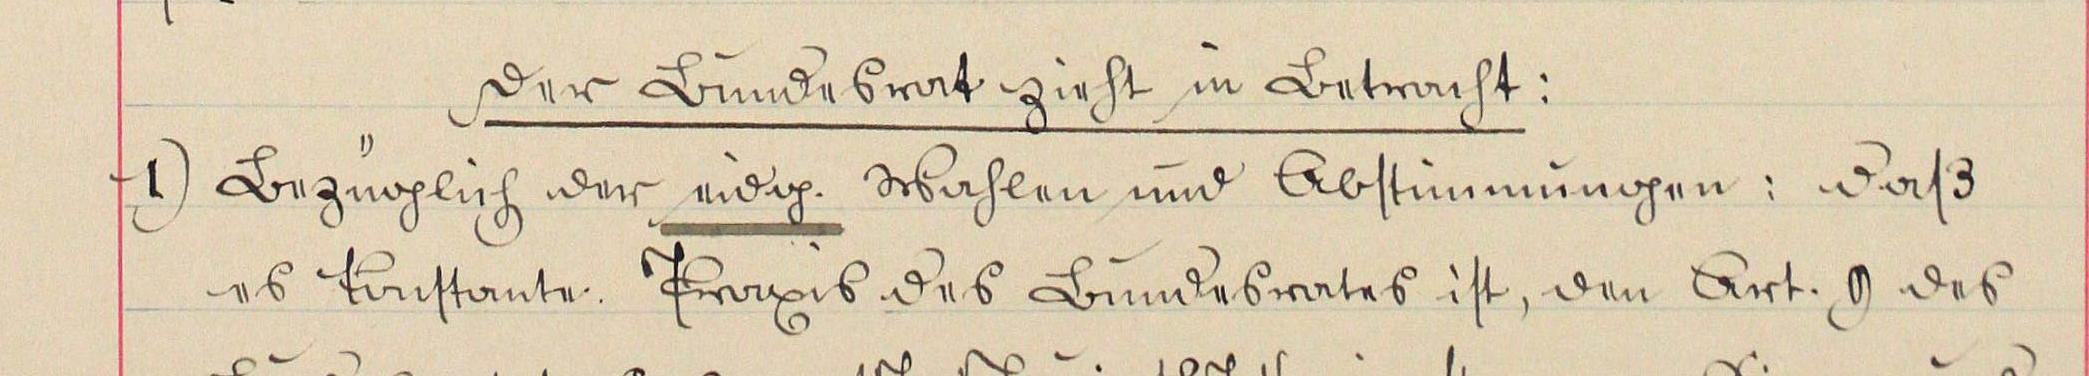 Der Bundesrat zieht in Betracht:
1) Bezüglich der eidg. Wahlen und Abstimmungen: daß
es konstante Praxis des Bundesrates ist, den Art. 9 des